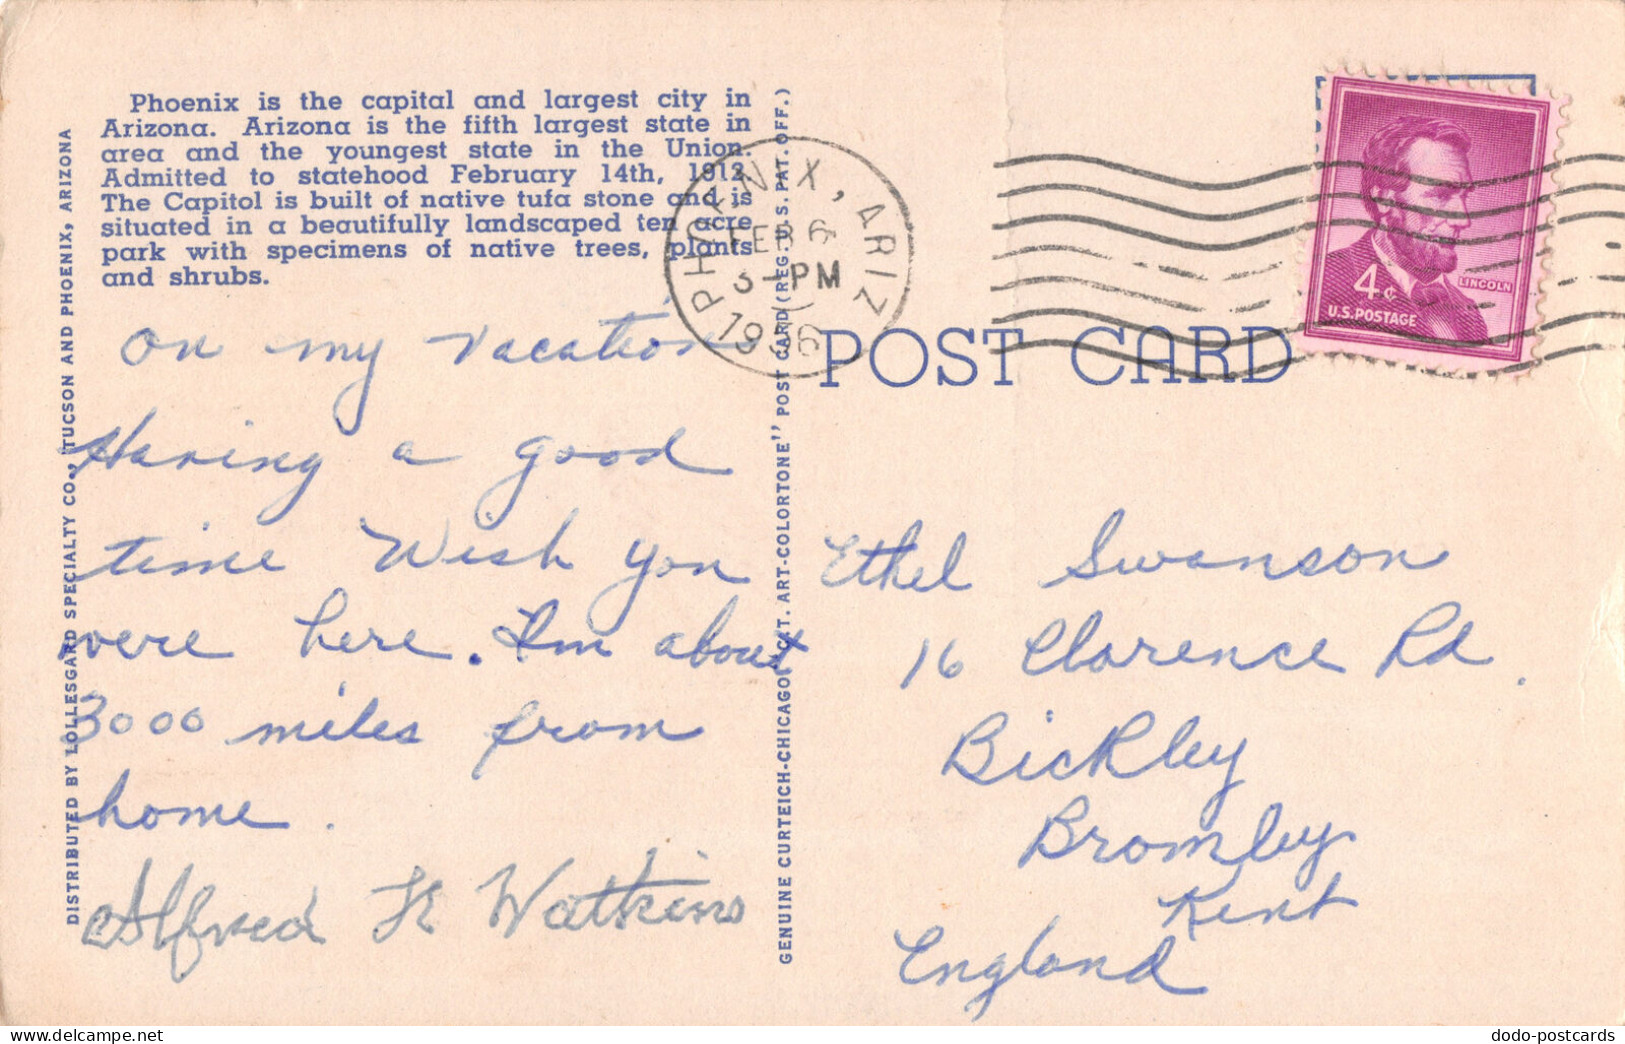 Phoenix is the capital and largest city in
Arizona. Arizona is the fifth largest state in
area and the youngest state in the Union.
Admitted to statehood February 14th, 1912.
The Capitol is built of native tufa stone and is
situated in a beautifully landscaped ten acre
park with specimens of native trees, plants
and shrubs.
DISTRIBUTED BY LOLLESGARD SPECIALTY CO., TUCSON AND PHOENIX, ARIZONA
On my vacation
Having a good
time Wish you
were here. I'm about
3000 miles from
home.
Alfred Watkins
GENUINE CURTEICH-CHICAGO "C.T. ART-COLORTONE" POST CARD (REG. U.S. PAT. OFF.)
PHOENIX, ARIZ
FEB 6
3-PM
1956
4¢
LINCOLN
U.S. POSTAGE
POST CARD
Ethel Swanson
16 Clarence Rd.
Bickley
Bromley
Kent
England
dodo-postcards